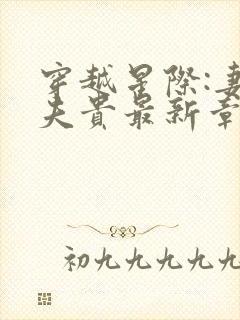 穿越星际:妻
夫贵最新章
初九九九九九